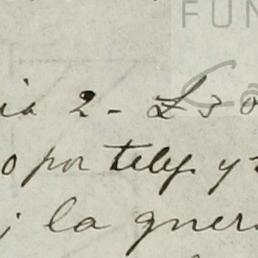 FUN
ia 2 - L 30
o por telf. y
; la guer